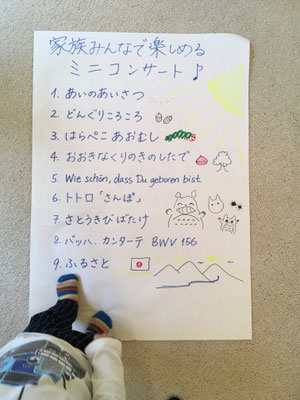 家族みんなで楽しめる
ミニコンサート♪
1. あいのあいさつ
2. どんぐりころころ
3. はらぺこあおむし
4. おおきなくりのきのしたで
5. Wie schön, dass Du geboren bist
6. トトロ「さんぽ」
7. さとうきびばたけ
8. バッハ、カンターテ BWV 156
9. ふるさと